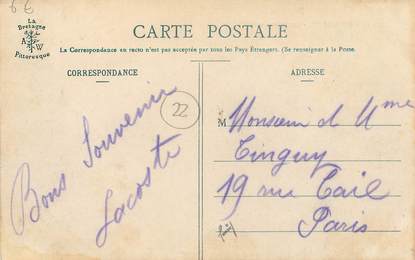 6€
La
Bretagne
A W
Pittoresque
CARTE POSTALE
La Correspondance au recto n'est pas acceptée par tous les Pays Étrangers. (Se renseigner à la Poste.
CORRESPONDANCE
ADRESSE
Bons Souvenirs
Lacoste
22
M
Monsieur et Mme
Tinguy
19 rue Tail
Paris